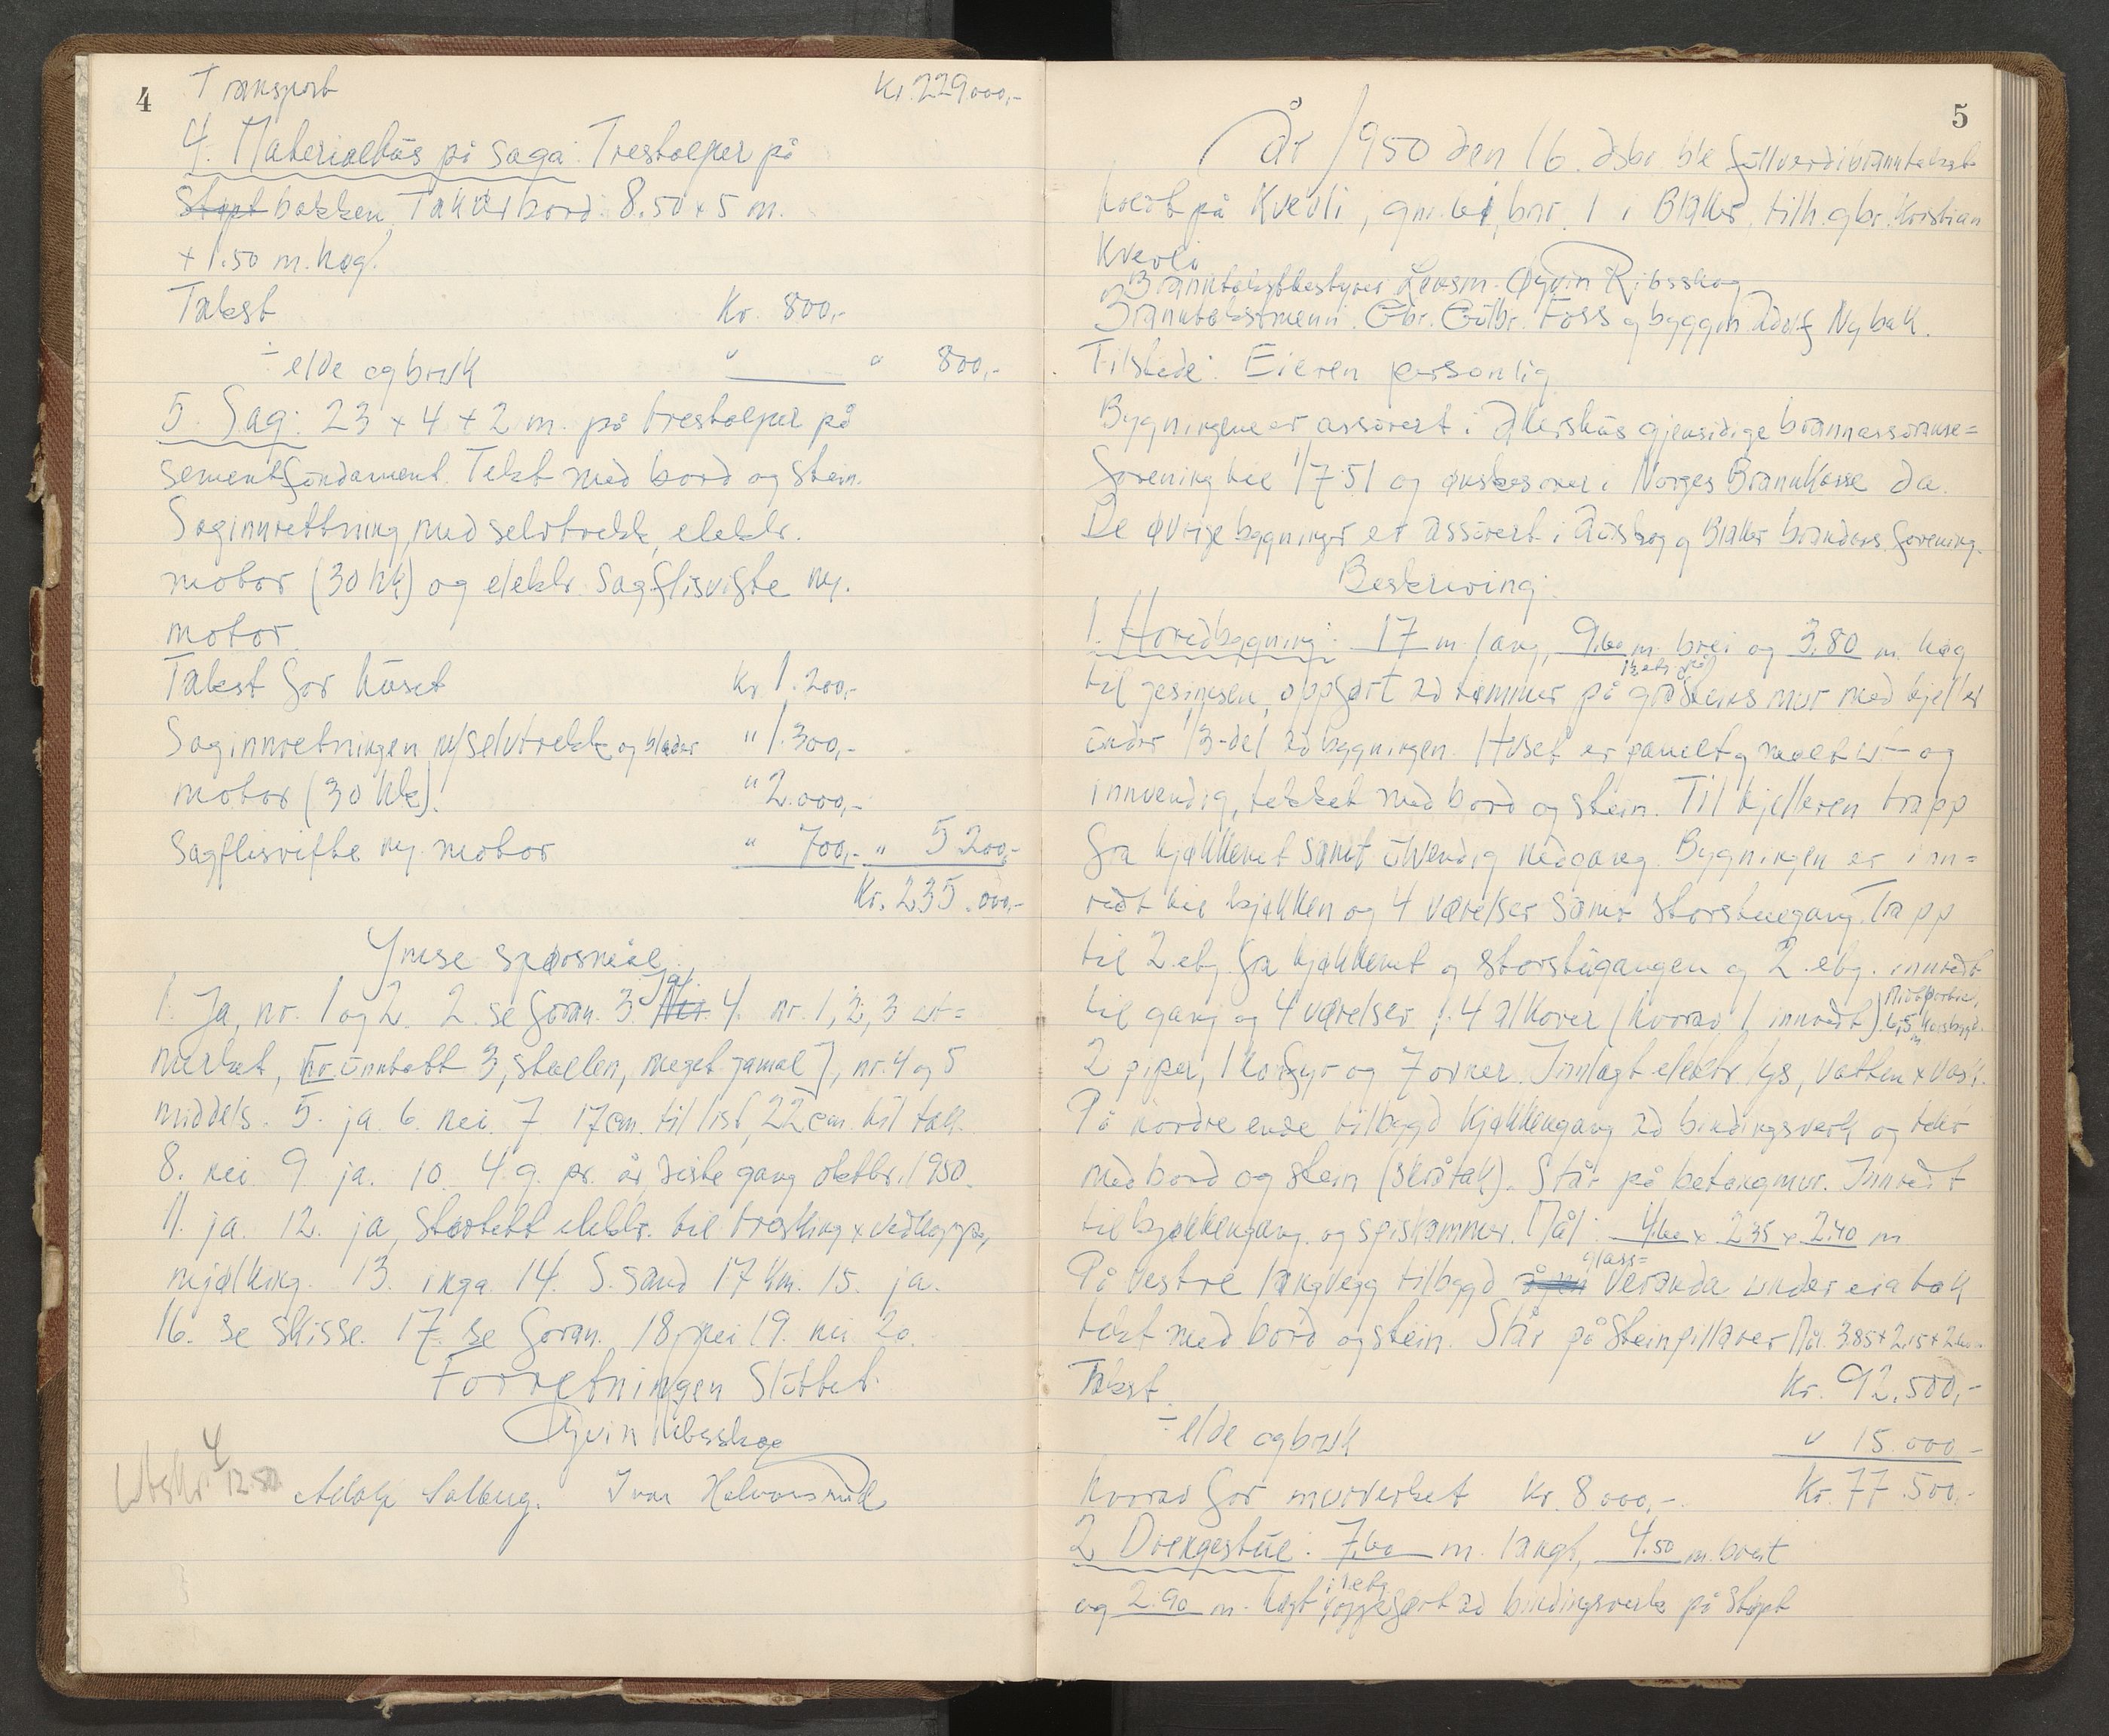 4
Transport Kr. 229.000,-
4. Materialhus på saga: Trestolper på
Støpt bakken. Takt bord. 8.50 x 5 m.
x 1.50 m. høg.
Takst Kr. 800,-
÷ elde og bruk " " 800,-
5. Sag: 23 x 4 x 2 m. på trestolper på
sementfundament. Tekt med bord og stein.
Saginnrettning, med selvtrekk, elektr.
motor (30 hk) og elektr. sagflisvifte m.
motor.
Takst for huset Kr. 1.200,-
Saginnretningen m/selvtrekk og blader " 1.300,-
motor (30 hk). " 2.000,-
Sagflisvifte m. motor " 700,- " 5 200,-
Kr. 235.000,-
Ymse spørsmål.
1. Ja, nr. 1 og 2. 2. se foran. 3. Nei. Ja. 4. nr. 1, 2, 3 ut=
merket, [nr. unntatt 3, stallen, meget gamal], nr. 4 og 5
middels. 5. ja. 6. nei. 7. 17 cm. til list, 22 cm. til tak.
8. nei. 9. ja. 10. 4 g. pr. år, siste gang oktbr. 1950.
11. ja. 12. ja, størtett elektr. til tresking x vedkapp,
mjølking. 13. inga. 14. S.sand 17 km. 15. ja.
16. se skisse. 17. se foran. 18. nei 19. nei 20.
Forretningen sluttet.
Øyvin Ribsskog
Utskr. 4/12 50
Adolf Solberg. Ivar Halvorsrud
5
År 1950 den 16. dsbr. ble fullverdibranntakst
holdt på Kvevli, gnr. 61, bnr. 1 i Blaker, tilh. gbr. Kristian
Kvevli
Branntakstbestyrer Lensm. Øyvin Ribsskog
og Branntakstmenn. Gbr. Gulbr. Foss og byggm Adolf Nybak.
Tilstede: Eieren personlig
Bygningene er assurert i Akershus gjensidige brannassuranse=
forening til 1/7 51 og ønskes over i Norges Brannkasse da.
De øvrige bygninger er assurert i Aurskog og Blaker brandass. forening.
Beskriving:
1. Hovedbygning: 17 m. lang, 9.60 m. brei og 3.80 m. høg
til gesimsen, oppført av tømmer på gråsteins mur med kjeller
under 1/3-del av bygningen. Huset er panelt og malt ut- og
innvendig, tekket med bord og stein. Til kjelleren trapp
fra kjøkkenet samt utvendig nedgang. Bygningen er inn=
redt til kjøkken og 4 værelser samt storstuegang. Trapp
til 2. etg. fra kjøkkenet og storstugangen og 2. etg. innredt
til gang og 4 værelser, 4 alkover (hvorav 1 innredt).
2 piper, 1 komfyr og 7 ovner. Innlagt elektr. lys, vatten x vask.
På nordre ende tilbygd kjøkkengang av bindingsverk og tekt
med bord og stein (skråtak). Står på betongmur. Innredt
til kjøkkengang og spiskammer. Mål: 4.60 x 2.35 x 2.40 m
På vestre langvegg tilbygd glass= veranda under eia tak
tekt med bord og stein. Står på steinpillarer Mål. 3.85 x 2.15 x 2.60.
Takst. Kr. 92.500,-
÷ elde og bruk " 15.000 -
Hvorav for murverket Kr. 8 000,-. Kr. 77.500,-
2. Drengestue: 7.60 m. langt, 4.50 m. breit
og 2.90 m. høgt i 1 etg, oppført av bindingsverk på støpt